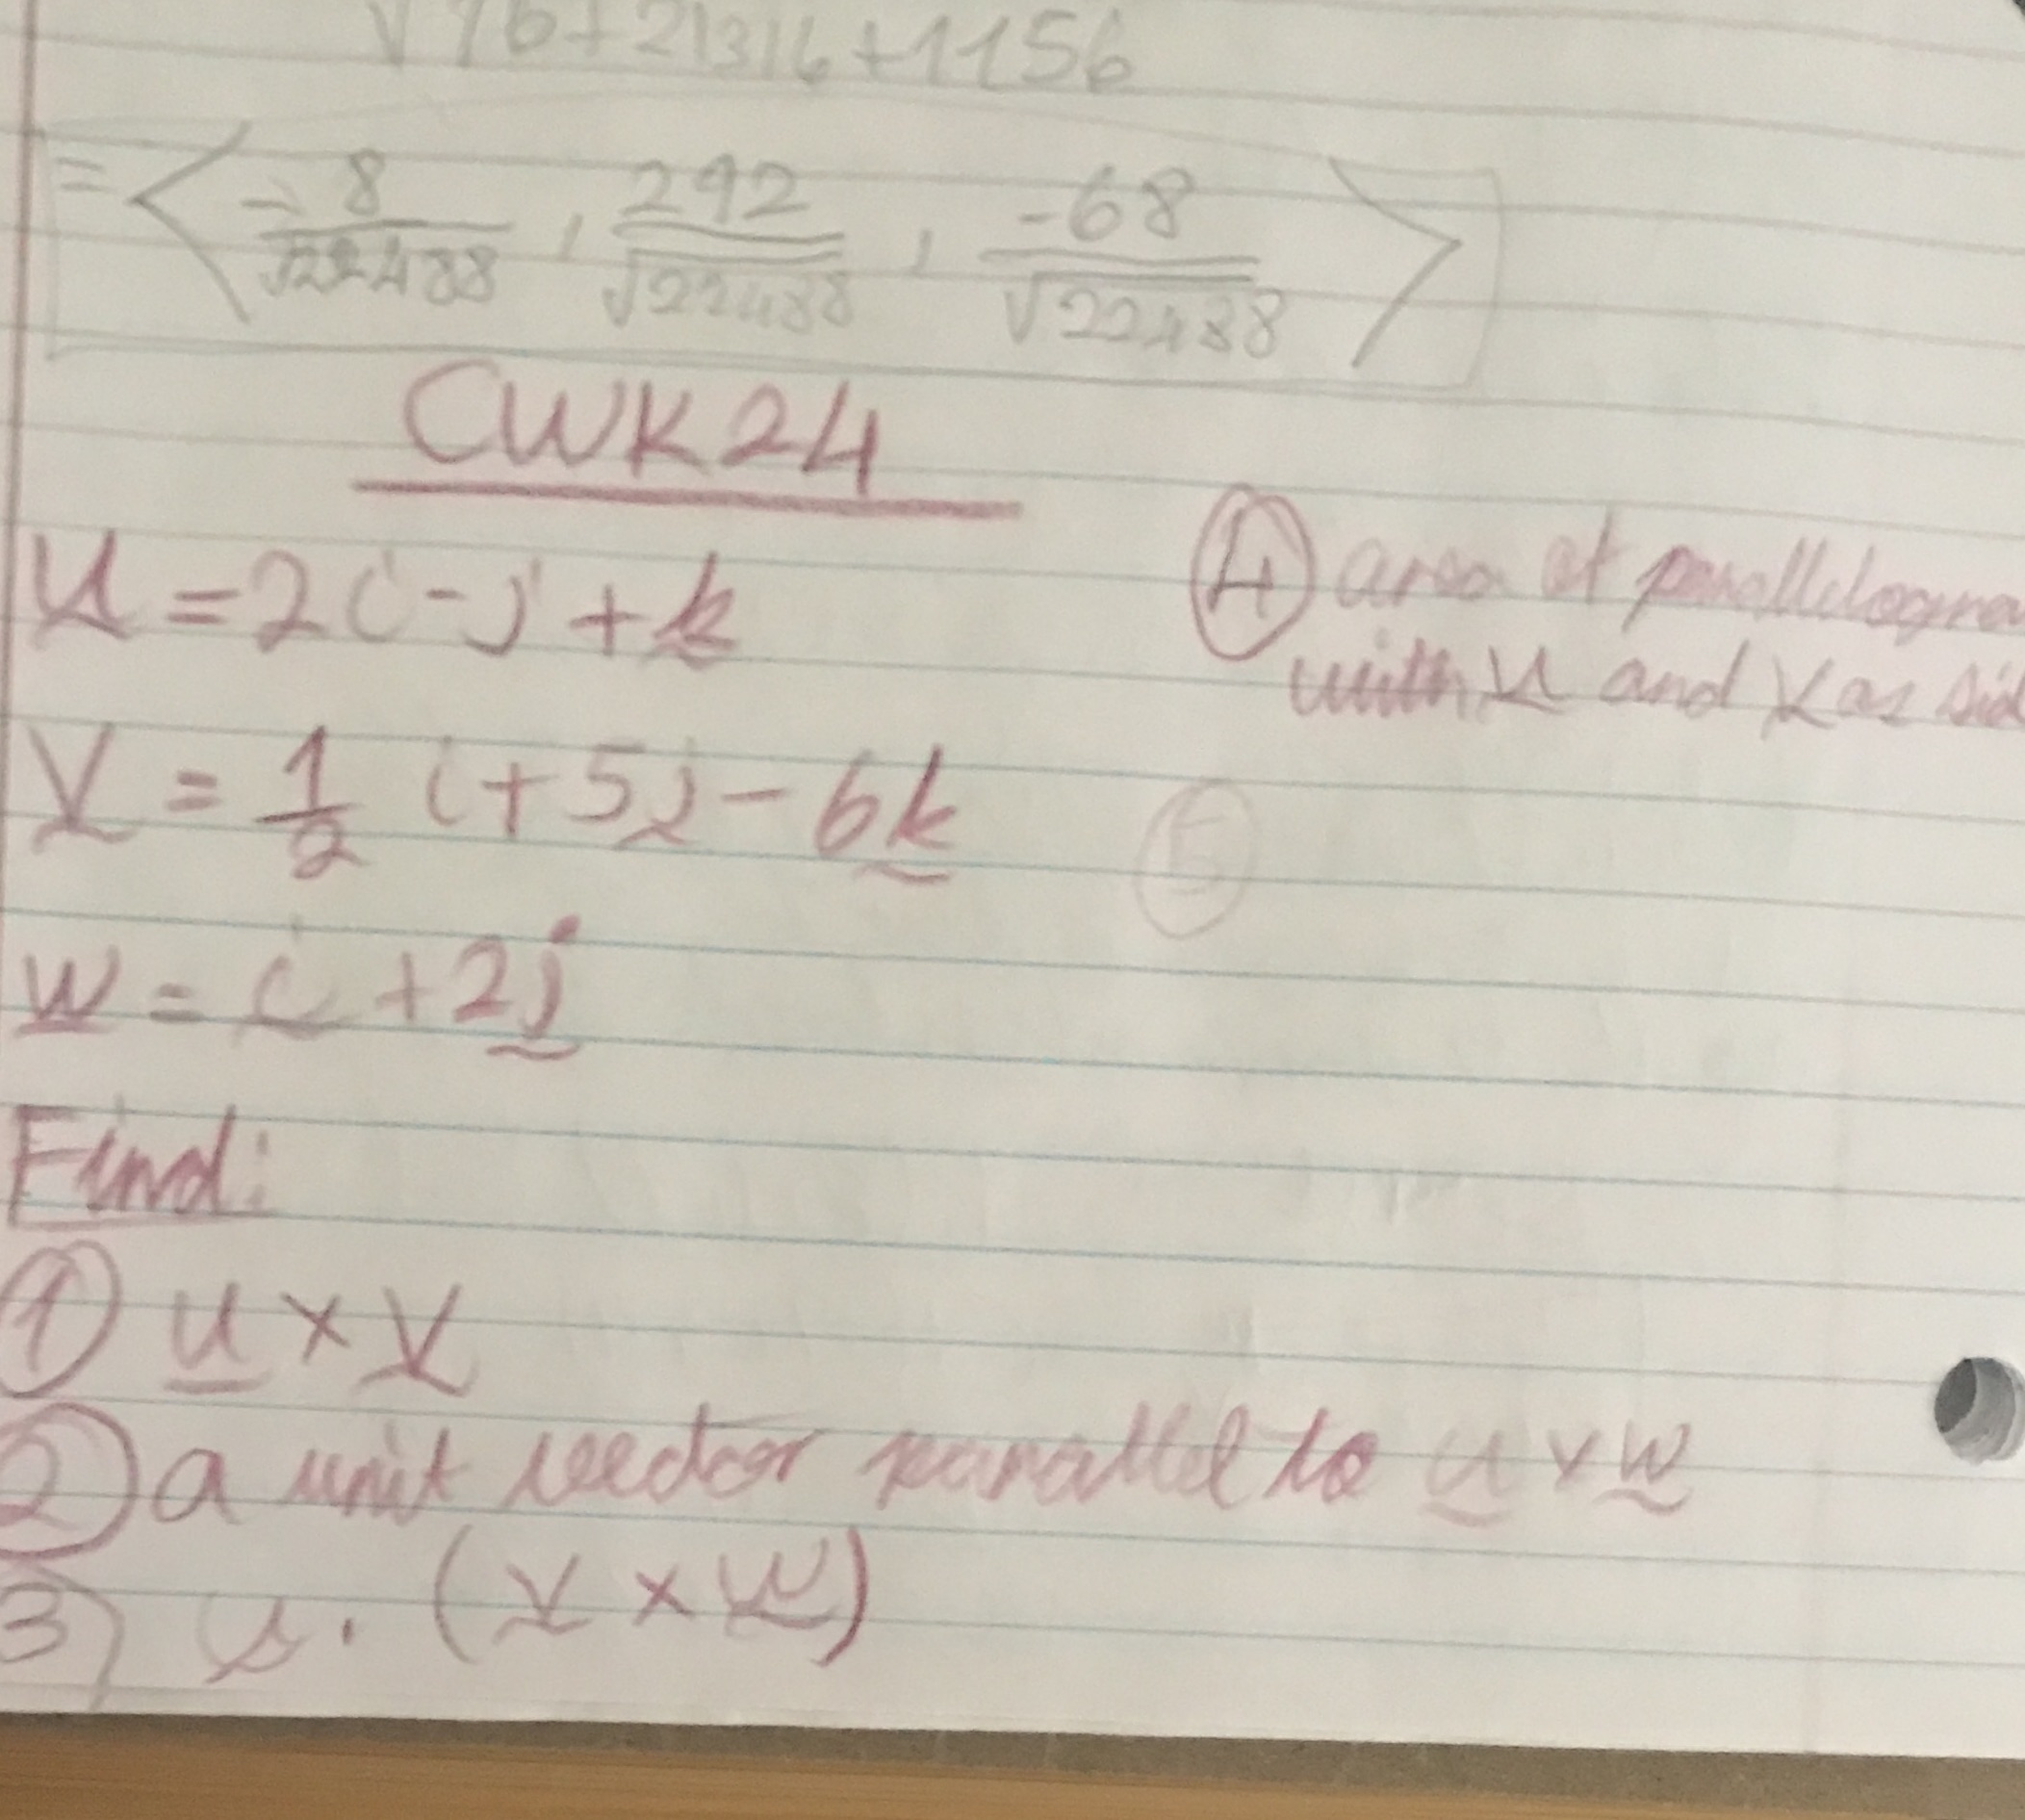 √16+21316+1156
= < -8/√22488 , 292/√22488 , -68/√22488 >
CWK24
u = 2i - j + k
v = 1/2 i + 5j - 6k
w = i + 2j
Find:
① u × v
② a unit vector parallel to u × w
③ u · (v × w)
④ area of parallelogra
with u and v as sid
⑤